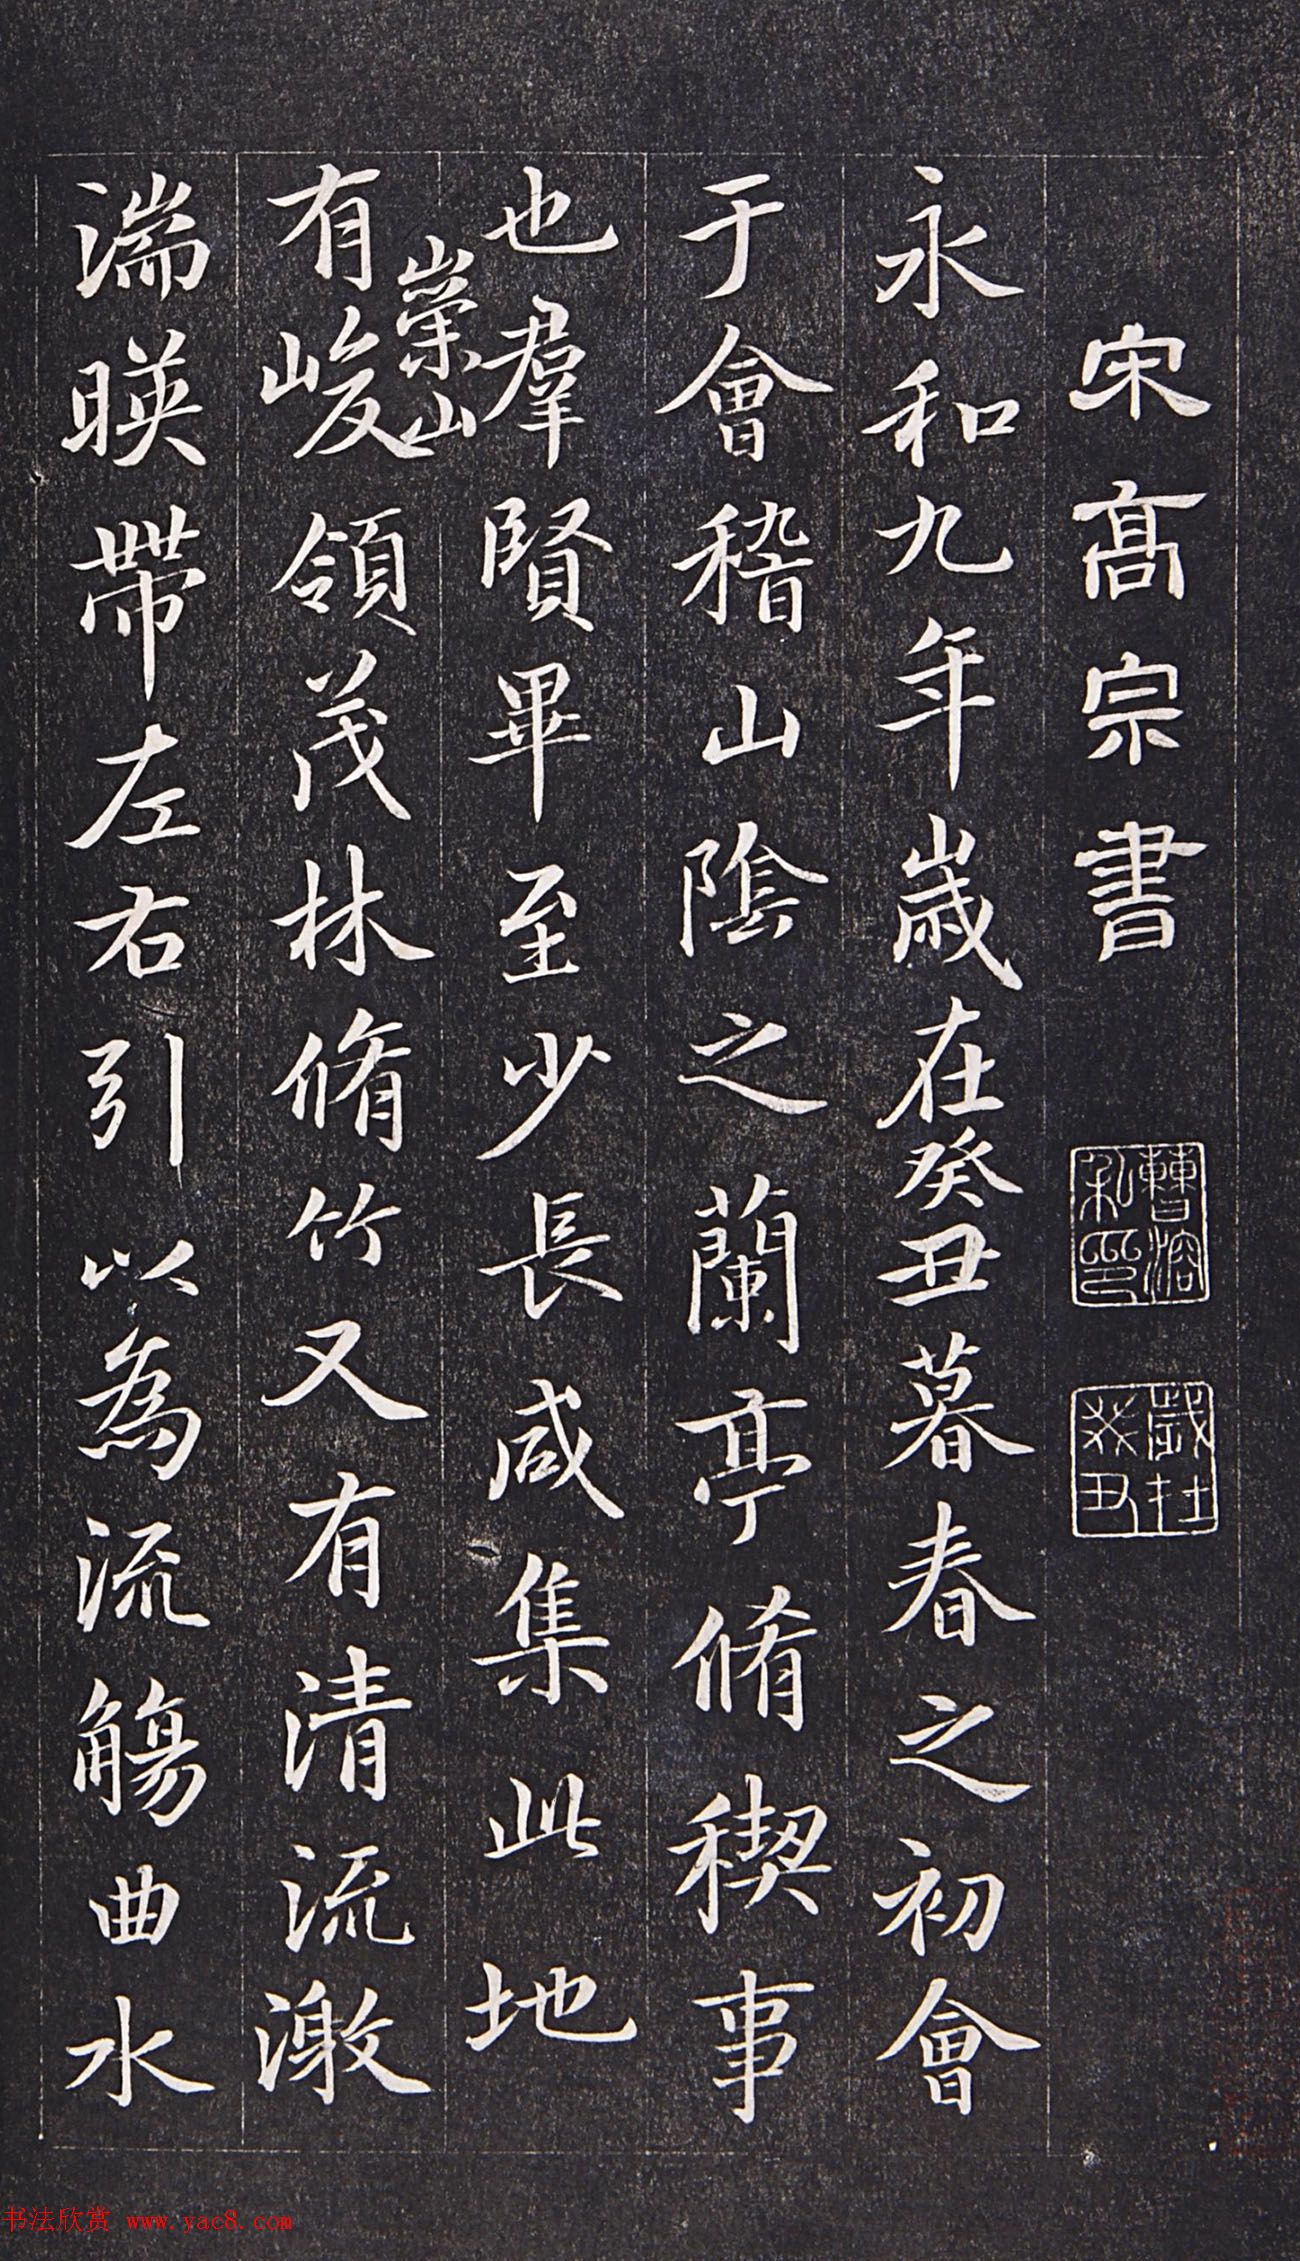 宋高宗書
曹溶私印
歲在癸丑
永和九年歲在癸丑暮春之初會
于會稽山陰之蘭亭脩稧事
也羣賢畢至少長咸集此地
崇山
有峻領茂林脩竹又有清流激
湍暎帶左右引以為流觴曲水
书法欣赏 www.yac8.com